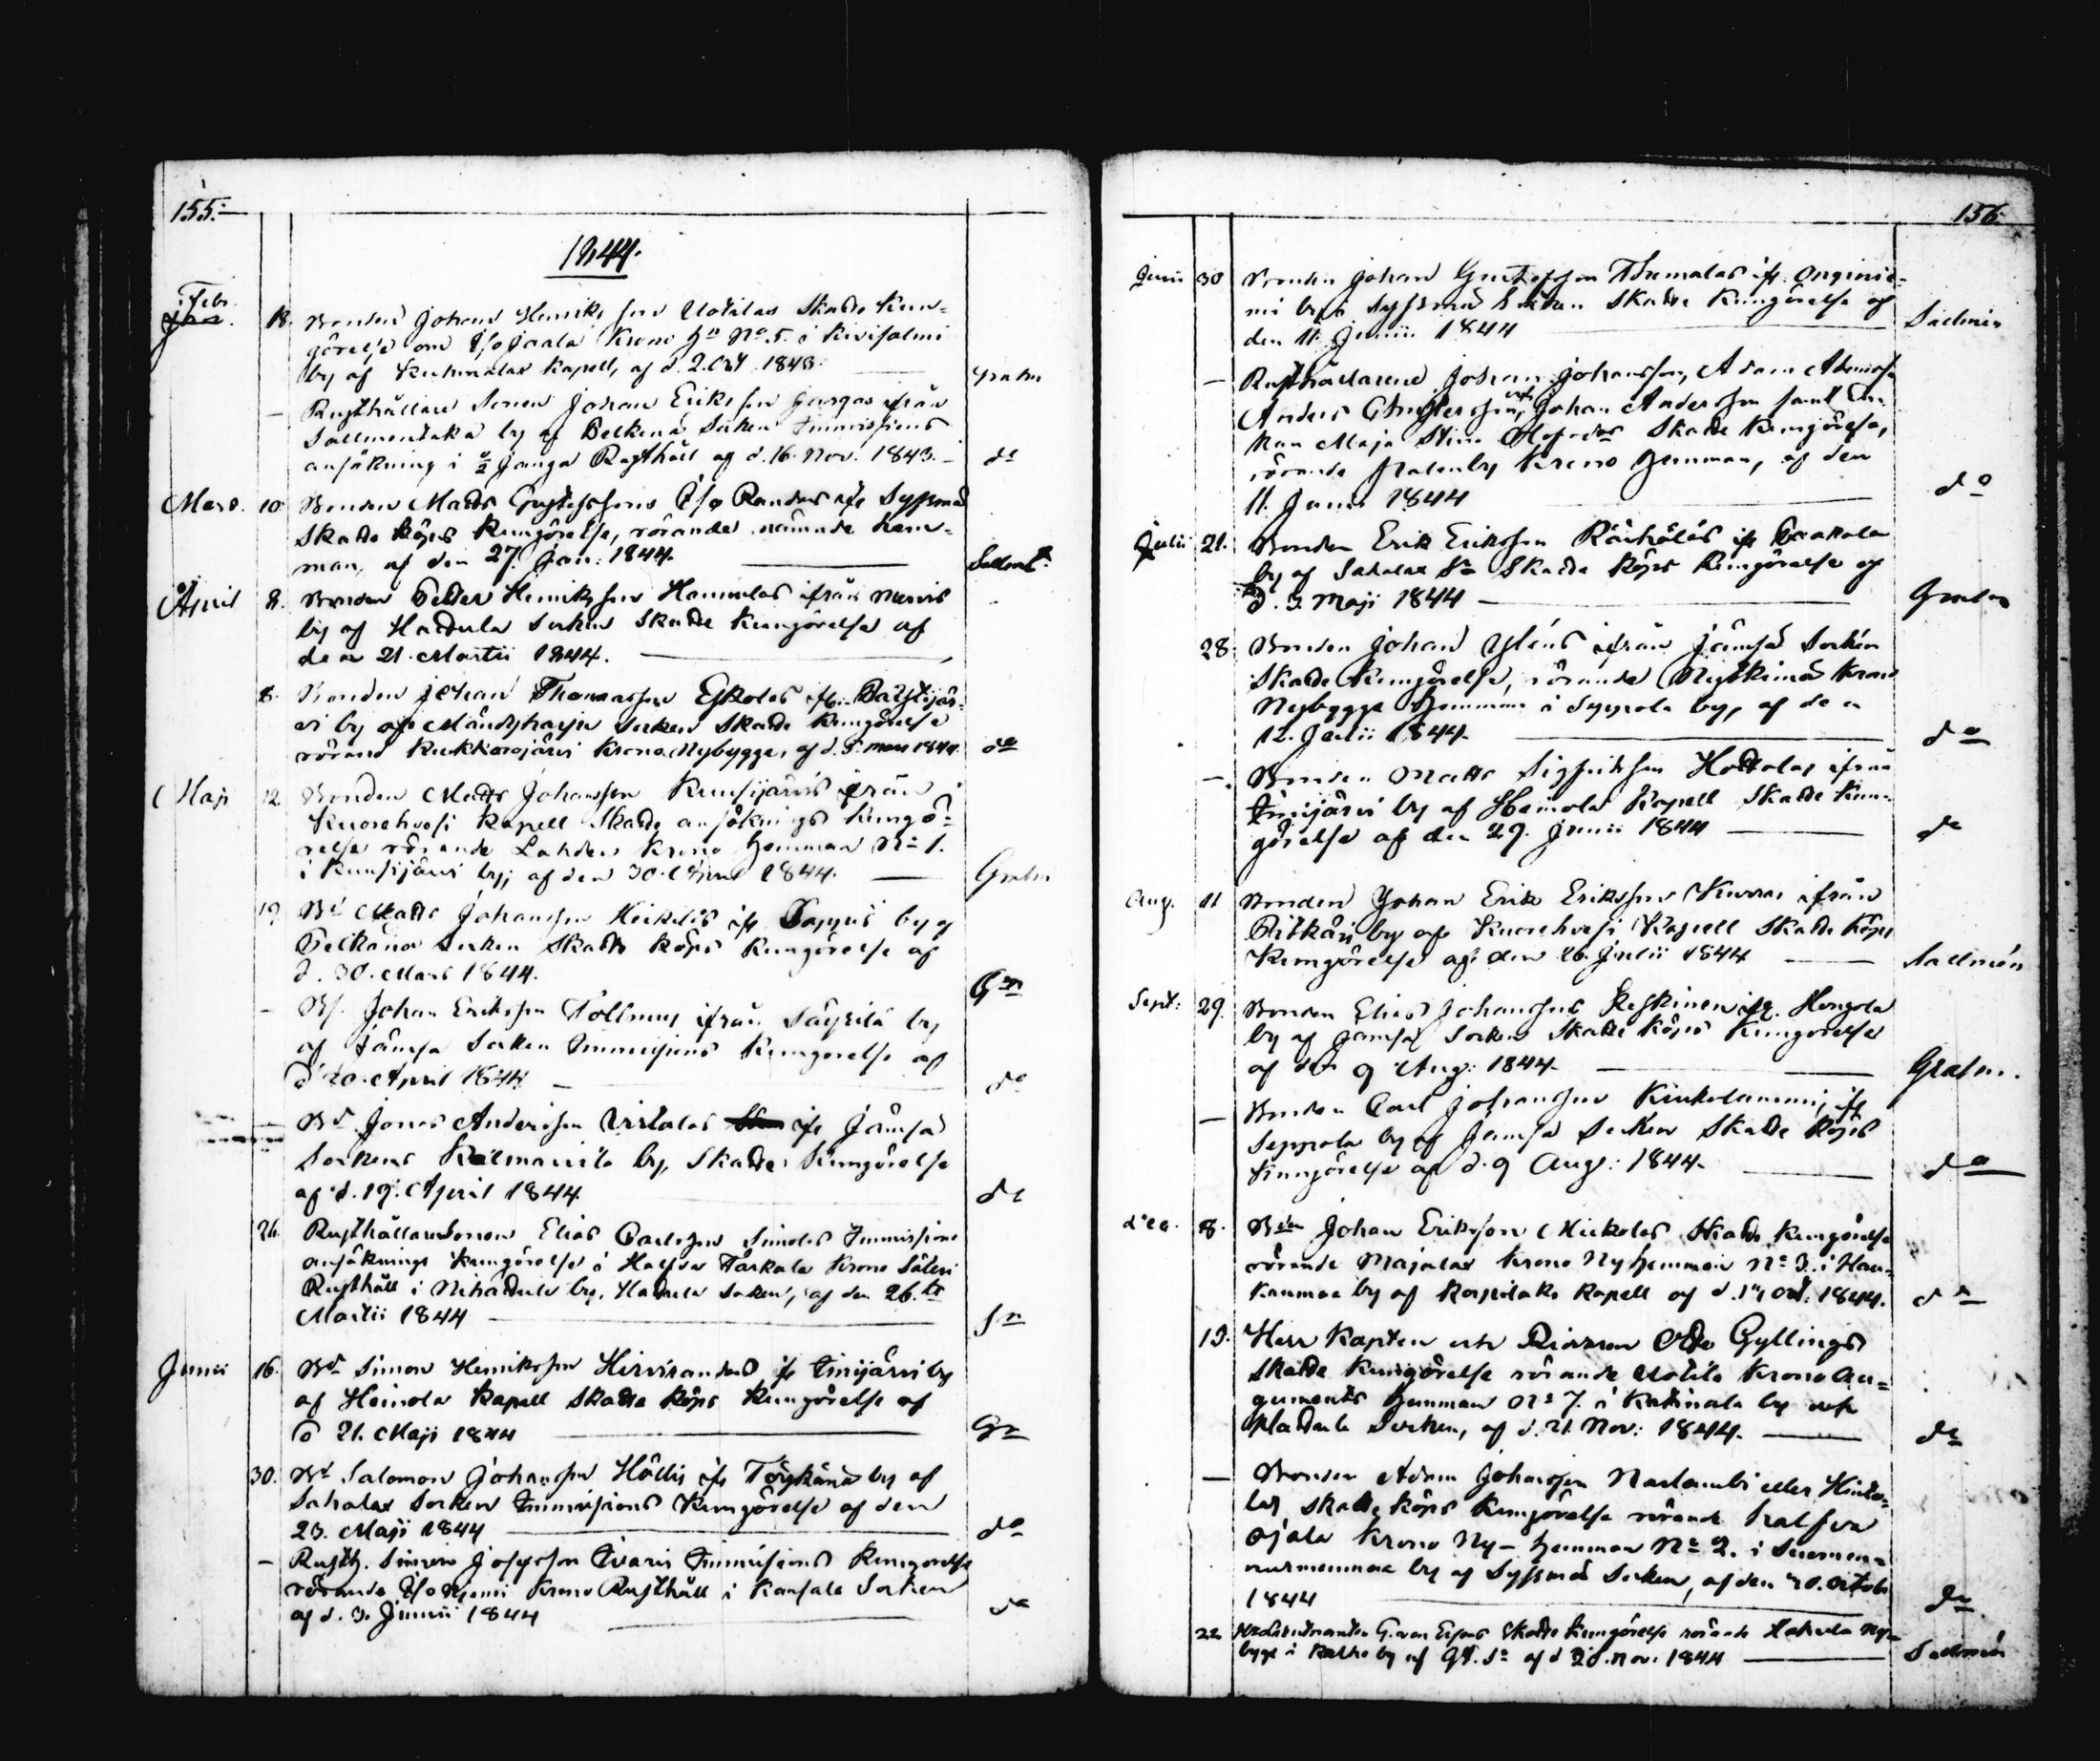 155.
1844.
Febr. 18. Bonden Johan Henriksson Uotilas Skatte Kun-
görelse om Iso Jaala Krono Hn No 5. i Kivisalmi
by af Kuhmalax Kapell, af d. 2. Oct. 1843. Grahn
— Rusthållare Sonen Johan Eriksson Jangas ifrån
Sallmentaka by af Pelkäne Socken Immissions
ansökning i ½ Janga Rusthåll af d. 16. Nov. 1843. — do
Mars. 10 Bonden Matts Gustafssons Iso Randas ifr Syssmä
Skatte köps Kungörelse, rörande nämnde hem-
man, af den 27. Jan: 1844. Sadm
April 8. Bonden Petter Henriksson Hannulas ifrån Mervis
by af Hattula Socken Skatte Kungörelse af
den 21. Martii 1844.
8. Bonden Johan Thomasson Eskolas ifr. Partsjär-
vi by af Mäntyharju Socken Skatte Kungörelse
rörand Kukkarojärvi Krono Nybygge, af d. 5. mars 1844. do
Maji 12. Bonden Matts Johansson Kuusijärvis ifrån
Kuorehvesi Kapell Skatte ansöknings Kungö-
relse rörande Lahden Krono Hemman No 1.
i Kuusijärvi by; af den 30. April 1844. Grahn
19 Bd Matts Johansson Heikkilis ifr Pappis by af
Pelkäne Socken Skatte köps Kungörelse af
d. 30. Mars 1844. Gn
— Bd. Johan Eriksson Tollmus ifrån Säyrilä by
af Jämsä Socken Immissions Kungörelse af
d 20. April 1844 — do
— Bd. Jonas Andersson Vistalas ifr Jämsä
Sockens Kalmavirta by, Skatte Kungörelse
af d. 19. April 1844. do
26. Rusthållaresonen Elias Carlsson Simolas Immissions
ansöknings Kungörelse i Halfva Tarkala Krono Säteri
Rusthåll i Nihattula by, Hattula Socken, af den 26.te
Martii 1844 Gn
Junii 16. Bd Simon Henriksson Hirvisandas ifr Imijärvi by
af Heinola Kapell Skatte köps Kungörelse af
d 21. Maji 1844 Gn
30. Bd Salomon Johansson Hällis ifr Töyskänä by af
Sahalax Socken Immissions Kungörelse af den
23. Maji 1844 do
— Rusth. Simon Josepsson Ivaris Immissions Kungörelse
rörande Iso Krono Rusthåll i Kansala Socken
af d. 3. Junii 1844 do
156.
Junii 30 Bonden Johan Gustafsson Tuomalas ifr. Onginie-
mi by i Syssmä Socken Skatte Kungörelse af
den 11. Junii 1844 Sadmén
— Rusthållarene Johan Johansson, Adam Adamsson
Anders Christersson, Johan Andersson samt En-
kan Maja Stina Olofsdor Skatte Kungörelse,
rörande Krono Hemman, af den
11. Junii 1844 do
Julii 21. Bonden Erik Eriksson Rauhalas ifr Paakola
by af Sahalax Sn Skatte köps Kungörelse af
d. 3. Maji 1844 — Grahn
28. Bonden Johan Yléns ifrån Jämsä Socken
Skatte Kungörelse, rörande Krono
Nybygge Hemman i Seppola by, af den
12. Junii 1844. do
— Bonden Matts Sigfridsson Hottolas ifrån
Imijärvi by af Heinola Kapell Skatte Kun-
görelse af den 29. Junii 1844 do
Aug. 11 Bonden Johan Erik Eriksson Kurras ifrån
Pitkän by af Kuorehvesi Kapell Skatte köps
Kungörelse af den 26. Julii 1844 Sadmén
Sept: 29. Bonden Elias Johansson Keskinen ifr. Hongola
by af Jämsä Socken Skatte köps Kungörelse
af den 9 Aug: 1844. Grahn.
— Bonden Carl Johansson Kinkolammi, ifr
Seppola by af Jämsä Socken Skatte köps
Kungörelse af d. 9 Aug: 1844. do
Dec. 8. Bden Johan Eriksson Mickolas Skatte Kungörelse
rörande Majalax Krono Nyhemman No 3. i Hau-
kanmaa by af Korpilaks Kapell af d. 17 Oct. 1844. do
15. Herr Kapten och Riddaren Otto Gyllings
Skatte Kungörelse rörande Uotila Krono Au-
guments Hemman No 7. i Katinala by af
Hattula Socken, af d. 21. Nov: 1844. do
— Bonden Adam Johansson Narlambi eller Hinto-
las Skatte köps Kungörelse rörande halfva
Ojala Krono Ny-hemman No 2. i Suomen-
nurmenmaa by af Syssmä Socken, af den 20. Octob
1844 do
22 G. von Skatte Kungörelse rörande Hakula Ny-
bygge i Kalho by af Gt. Sn af d 28. Nov. 1844 Sadmén